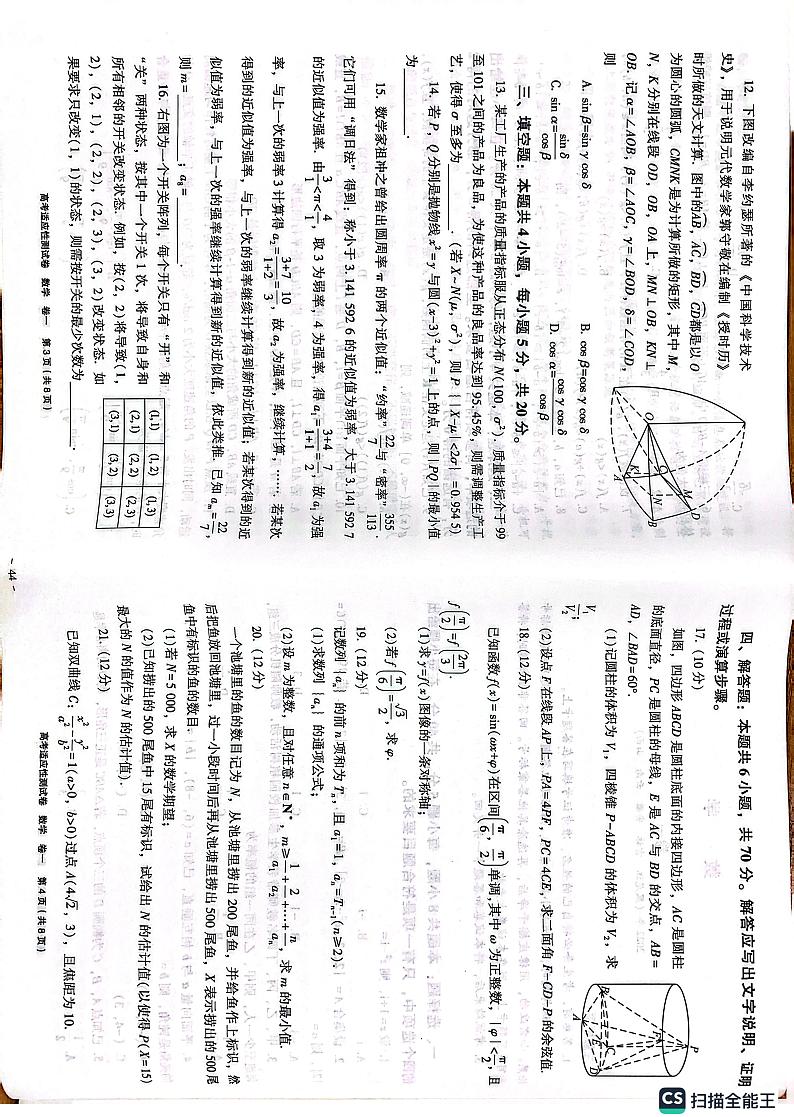 12. 下图改编自李约瑟所著的《中国科学技术
史》,用于说明元代数学家郭守敬在编制《授时历》
时所做的天文计算. 图中的AB, AC, BD, CD都是以 O
为圆心的圆弧, CMNK 是为计算所做的矩形, 其中 M,
N, K 分别在线段 OD, OB, OA 上, MN⊥OB, KN⊥
OB. 记 α=∠AOB, β=∠AOC, γ=∠BOD, δ=∠COD,
则
A. sin β=sin γ cos δ
B. cos β=cos γ cos δ
C. sin α=sin δ/cos β
D. cos α=cos γ cos δ/cos β
O
K
A
C
N
M
B
D
三、填空题: 本题共 4 小题, 每小题 5 分, 共 20 分。
13. 某工厂生产的产品的质量指标服从正态分布 N(100, σ²). 质量指标介于 99
至 101 之间的产品为良品, 为使这种产品的良品率达到 95.45%, 则需调整生产工
艺, 使得 σ 至多为______. (若 X~N(μ, σ²), 则 P{|X-μ|<2σ}=0.954 5)
14. 若 P, Q 分别是抛物线 x²=y 与圆(x-3)²+y²=1 上的点, 则|PQ|的最小值
为______.
15. 数学家祖冲之曾给出圆周率 π 的两个近似值: “约率”22/7与“密率”355/113.
它们可用“调日法”得到: 称小于 3.141 592 6 的近似值为弱率, 大于 3.141 592 7
的近似值为强率. 由3/1<π<4/1, 取 3 为弱率, 4 为强率, 得 a₁=3+4/1+1=7/2, 故 a₁ 为强
率, 与上一次的弱率 3 计算得 a₂=3+7/1+2=10/3, 故 a₂ 为强率, 继续计算, ……. 若某次
得到的近似值为强率, 与上一次的弱率继续计算得到新的近似值; 若某次得到的近
似值为弱率, 与上一次的强率继续计算得到新的近似值, 依此类推. 已知 aₘ=22/7,
则 m=______; a₈=______.
16. 右图为一个开关阵列, 每个开关只有“开”和
“关”两种状态, 按其中一个开关 1 次, 将导致自身和
所有相邻的开关改变状态. 例如, 按(2, 2)将导致(1,
2), (2, 1), (2, 2), (2, 3), (3, 2)改变状态. 如
果要求只改变(1, 1)的状态, 则需按开关的最少次数为
______.
(1,1) (1,2) (1,3)
(2,1) (2,2) (2,3)
(3,1) (3,2) (3,3)
高考适应性测试卷 数学 卷一 第 3 页(共 8 页)
- 44 -
四、解答题: 本题共 6 小题, 共 70 分。解答应写出文字说明、证明
过程或演算步骤。
17. (10 分)
如图, 四边形 ABCD 是圆柱底面的内接四边形, AC 是圆柱
的底面直径, PC 是圆柱的母线, E 是 AC 与 BD 的交点, AB=
AD, ∠BAD=60°.
(1)记圆柱的体积为 V₁, 四棱锥 P-ABCD 的体积为 V₂, 求
V₁/V₂;
(2)设点 F 在线段 AP 上, PA=4PF, PC=4CE, 求二面角 F-CD-P 的余弦值.
P
F
B
E
C
A
D
18. (12 分)
已知函数 f(x)=sin(ωx+φ)在区间(π/6, π/2)单调, 其中 ω 为正整数, |φ|<π/2, 且
f(π/2)=f(2π/3).
(1)求 y=f(x)图像的一条对称轴;
(2)若 f(π/6)=√3/2, 求 φ.
19. (12 分)
记数列{aₙ}的前 n 项和为 Tₙ, 且 a₁=1, aₙ=Tₙ₋₁(n≥2).
(1)求数列{aₙ}的通项公式;
(2)设 m 为整数, 且对任意 n∈N*, m≥1/a₁+2/a₂+…+n/aₙ, 求 m 的最小值.
20. (12 分)
一个池塘里的鱼的数目记为 N, 从池塘里捞出 200 尾鱼, 并给鱼作上标识, 然
后把鱼放回池塘里, 过一小段时间后再从池塘里捞出 500 尾鱼, X 表示捞出的 500 尾
鱼中有标识的鱼的数目.
(1)若 N=5 000, 求 X 的数学期望;
(2)已知捞出的 500 尾鱼中 15 尾有标识, 试给出 N 的估计值(以使得 P(X=15)
最大的 N 的值作为 N 的估计值).
21. (12 分)
已知双曲线 C: x²/a²-y²/b²=1(a>0, b>0)过点 A(4√2, 3), 且焦距为 10.
高考适应性测试卷 数学 卷一 第 4 页(共 8 页)
CS 扫描全能王